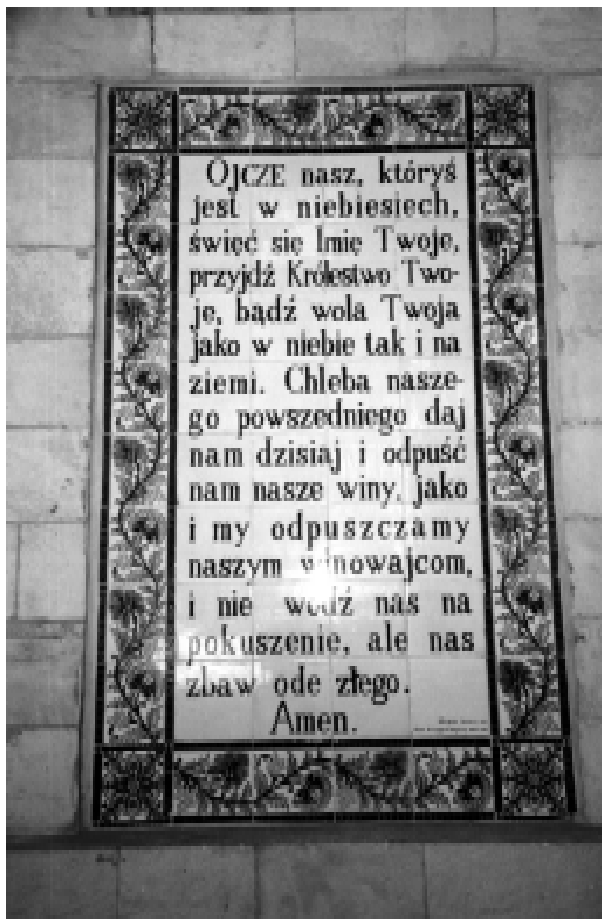 OJCZE nasz, któryś
jest w niebiesiech,
święć się Imię Twoje,
przyjdź Królestwo Two-
je, bądź wola Twoja
jako w niebie tak i na
ziemi. Chleba nasze-
go powszedniego daj
nam dzisiaj i odpuść
nam nasze winy, jako
i my odpuszczamy
naszym winowajcom,
i nie wodź nas na
pokuszenie, ale nas
zbaw ode złego.
Amen.